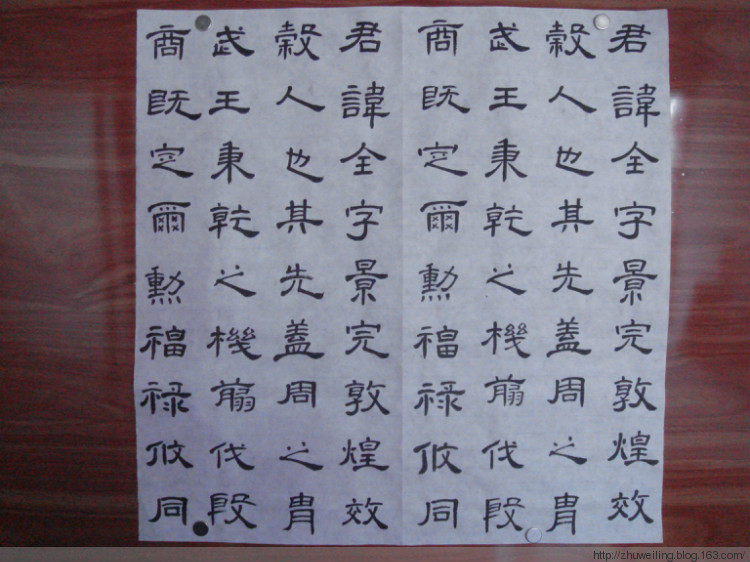 君諱全字景完敦煌效
穀人也其先蓋周之胄
武王秉乾之機翦伐殷
商既定爾勳福祿攸同
君諱全字景完敦煌效
穀人也其先蓋周之胄
武王秉乾之機翦伐殷
商既定爾勳福祿攸同
http://zhuweiling.blog.163.com/